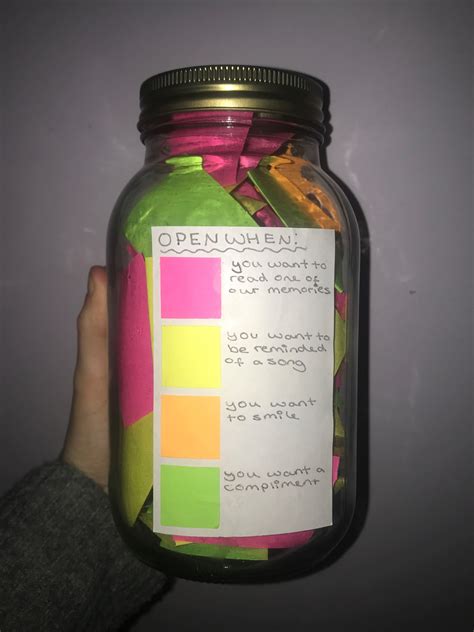 OPEN WHEN:
you want to
read one of
our memories
you want to
be reminded
of a song
you want
to smile
you want a
compliment